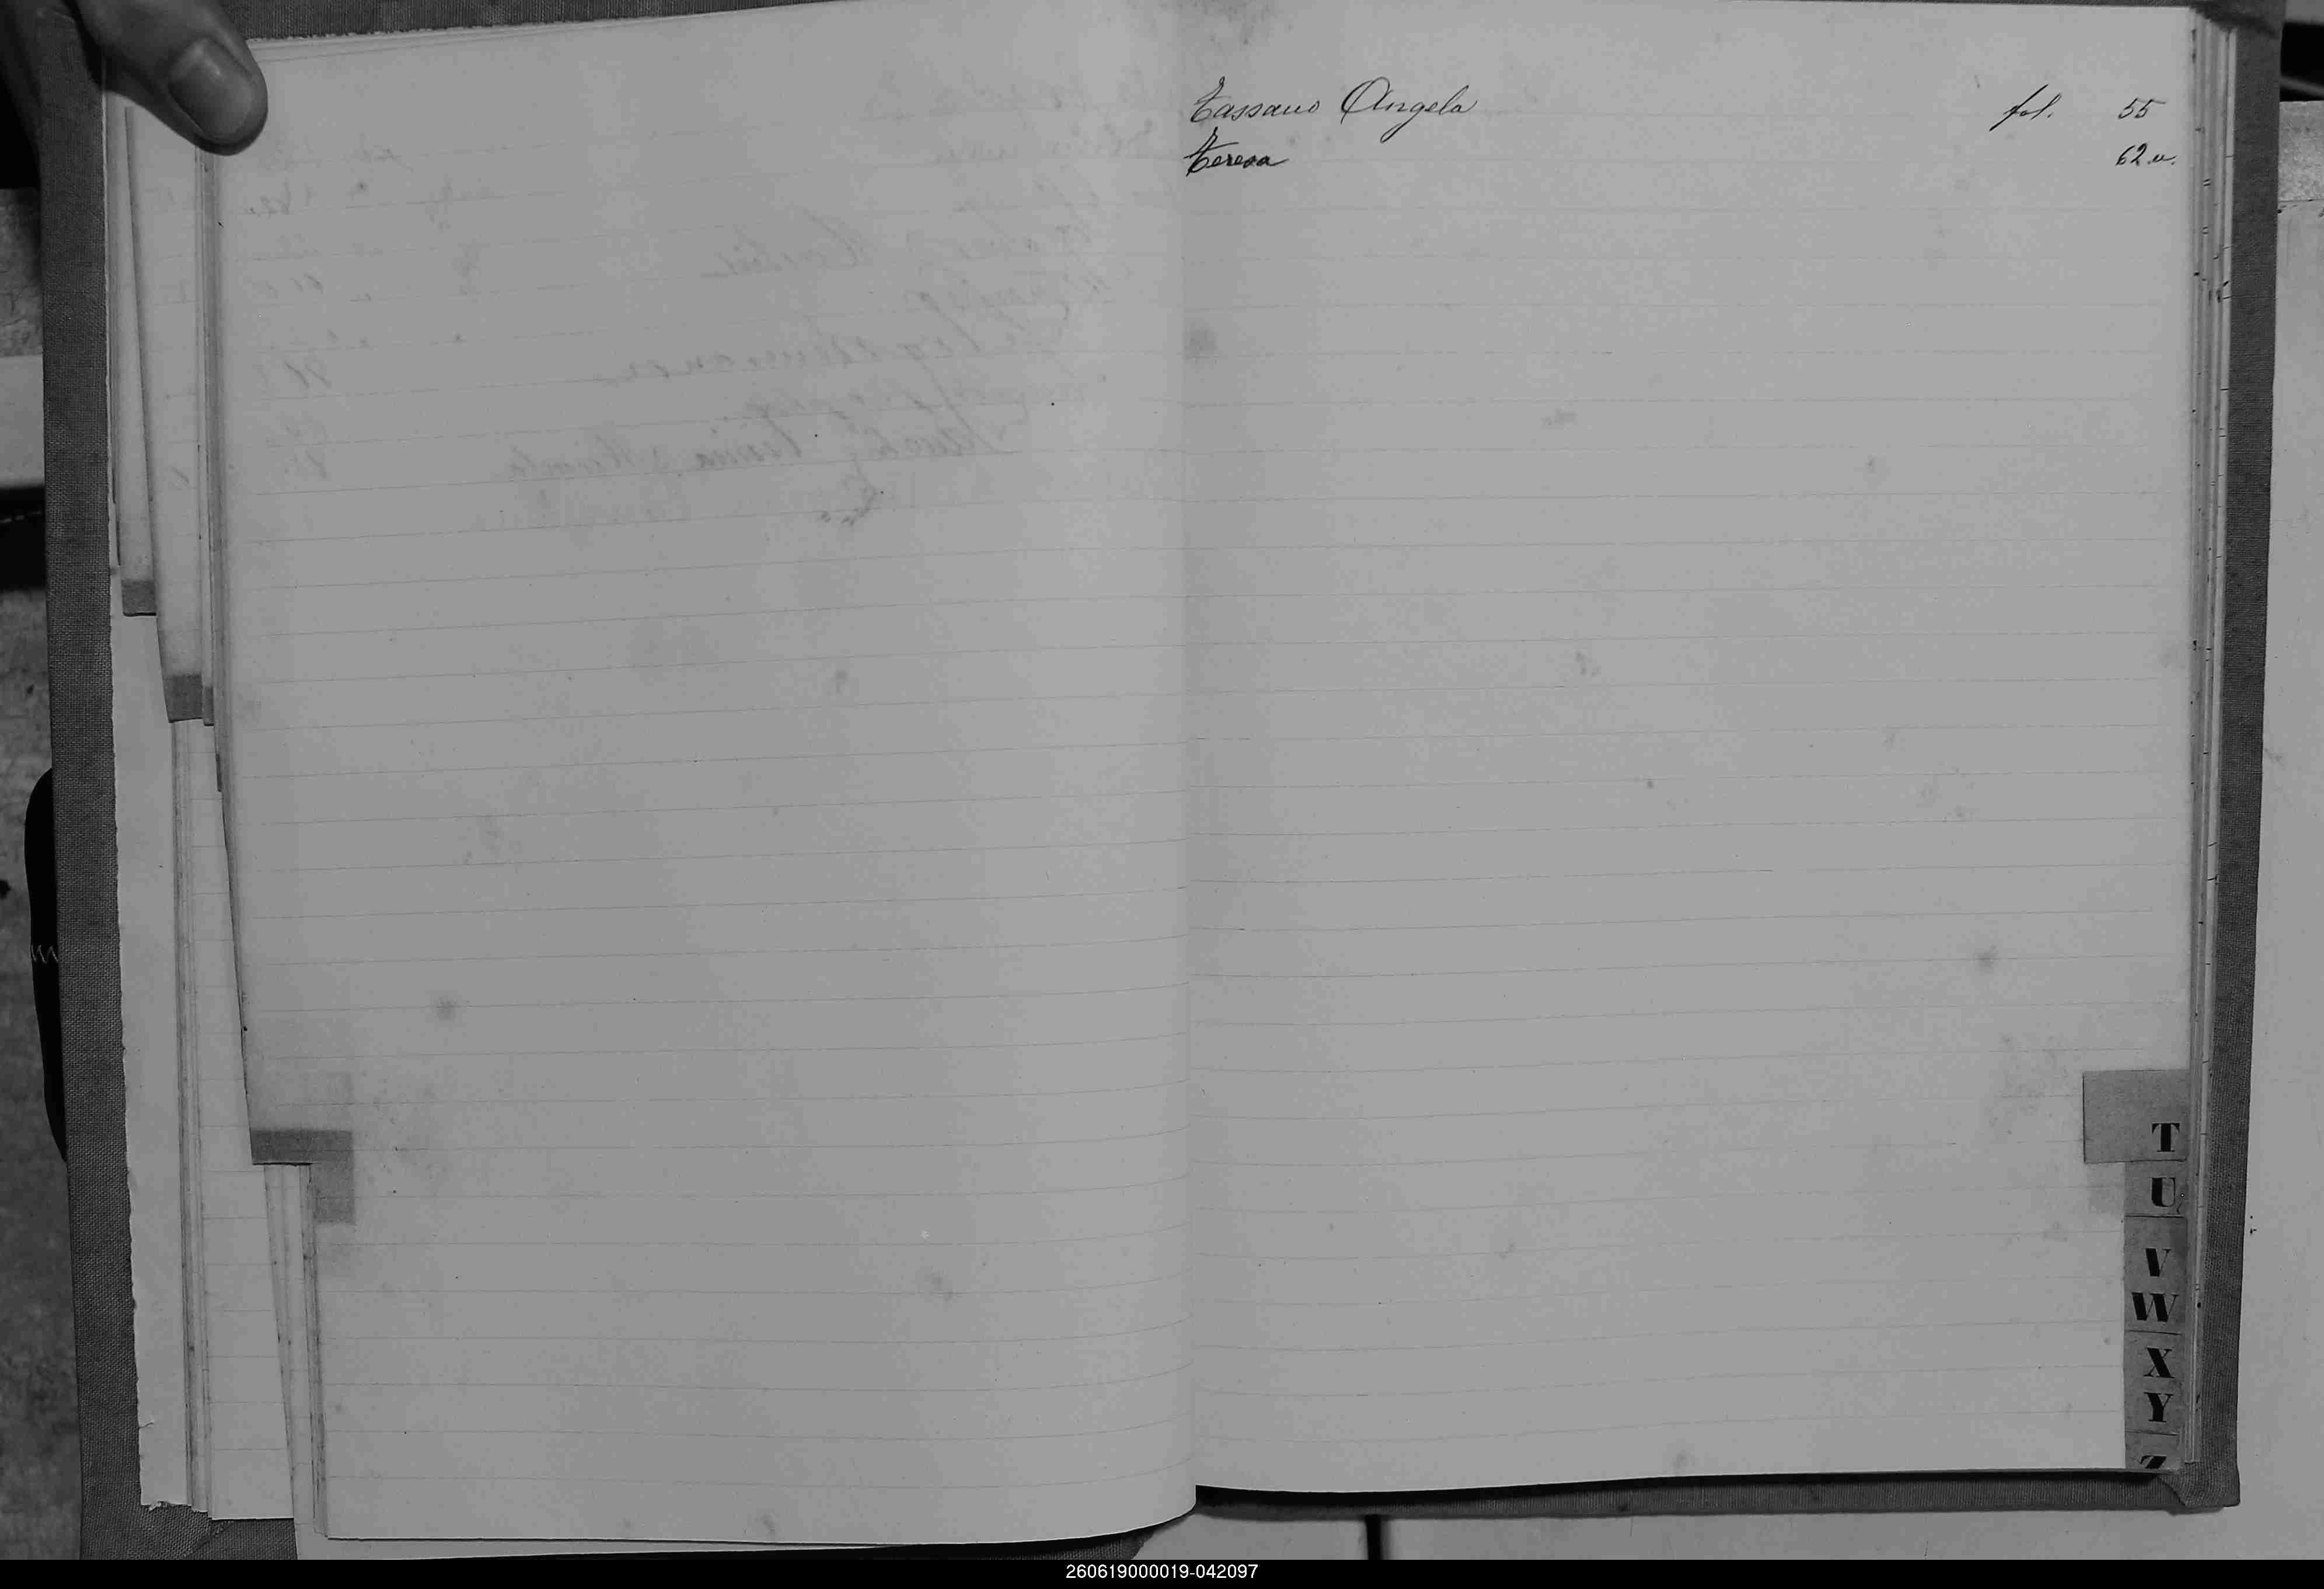 Tassano Angela fol. 55
Teresa 62.v.
T
U
V
W
X
Y
Z
260619000019-042097